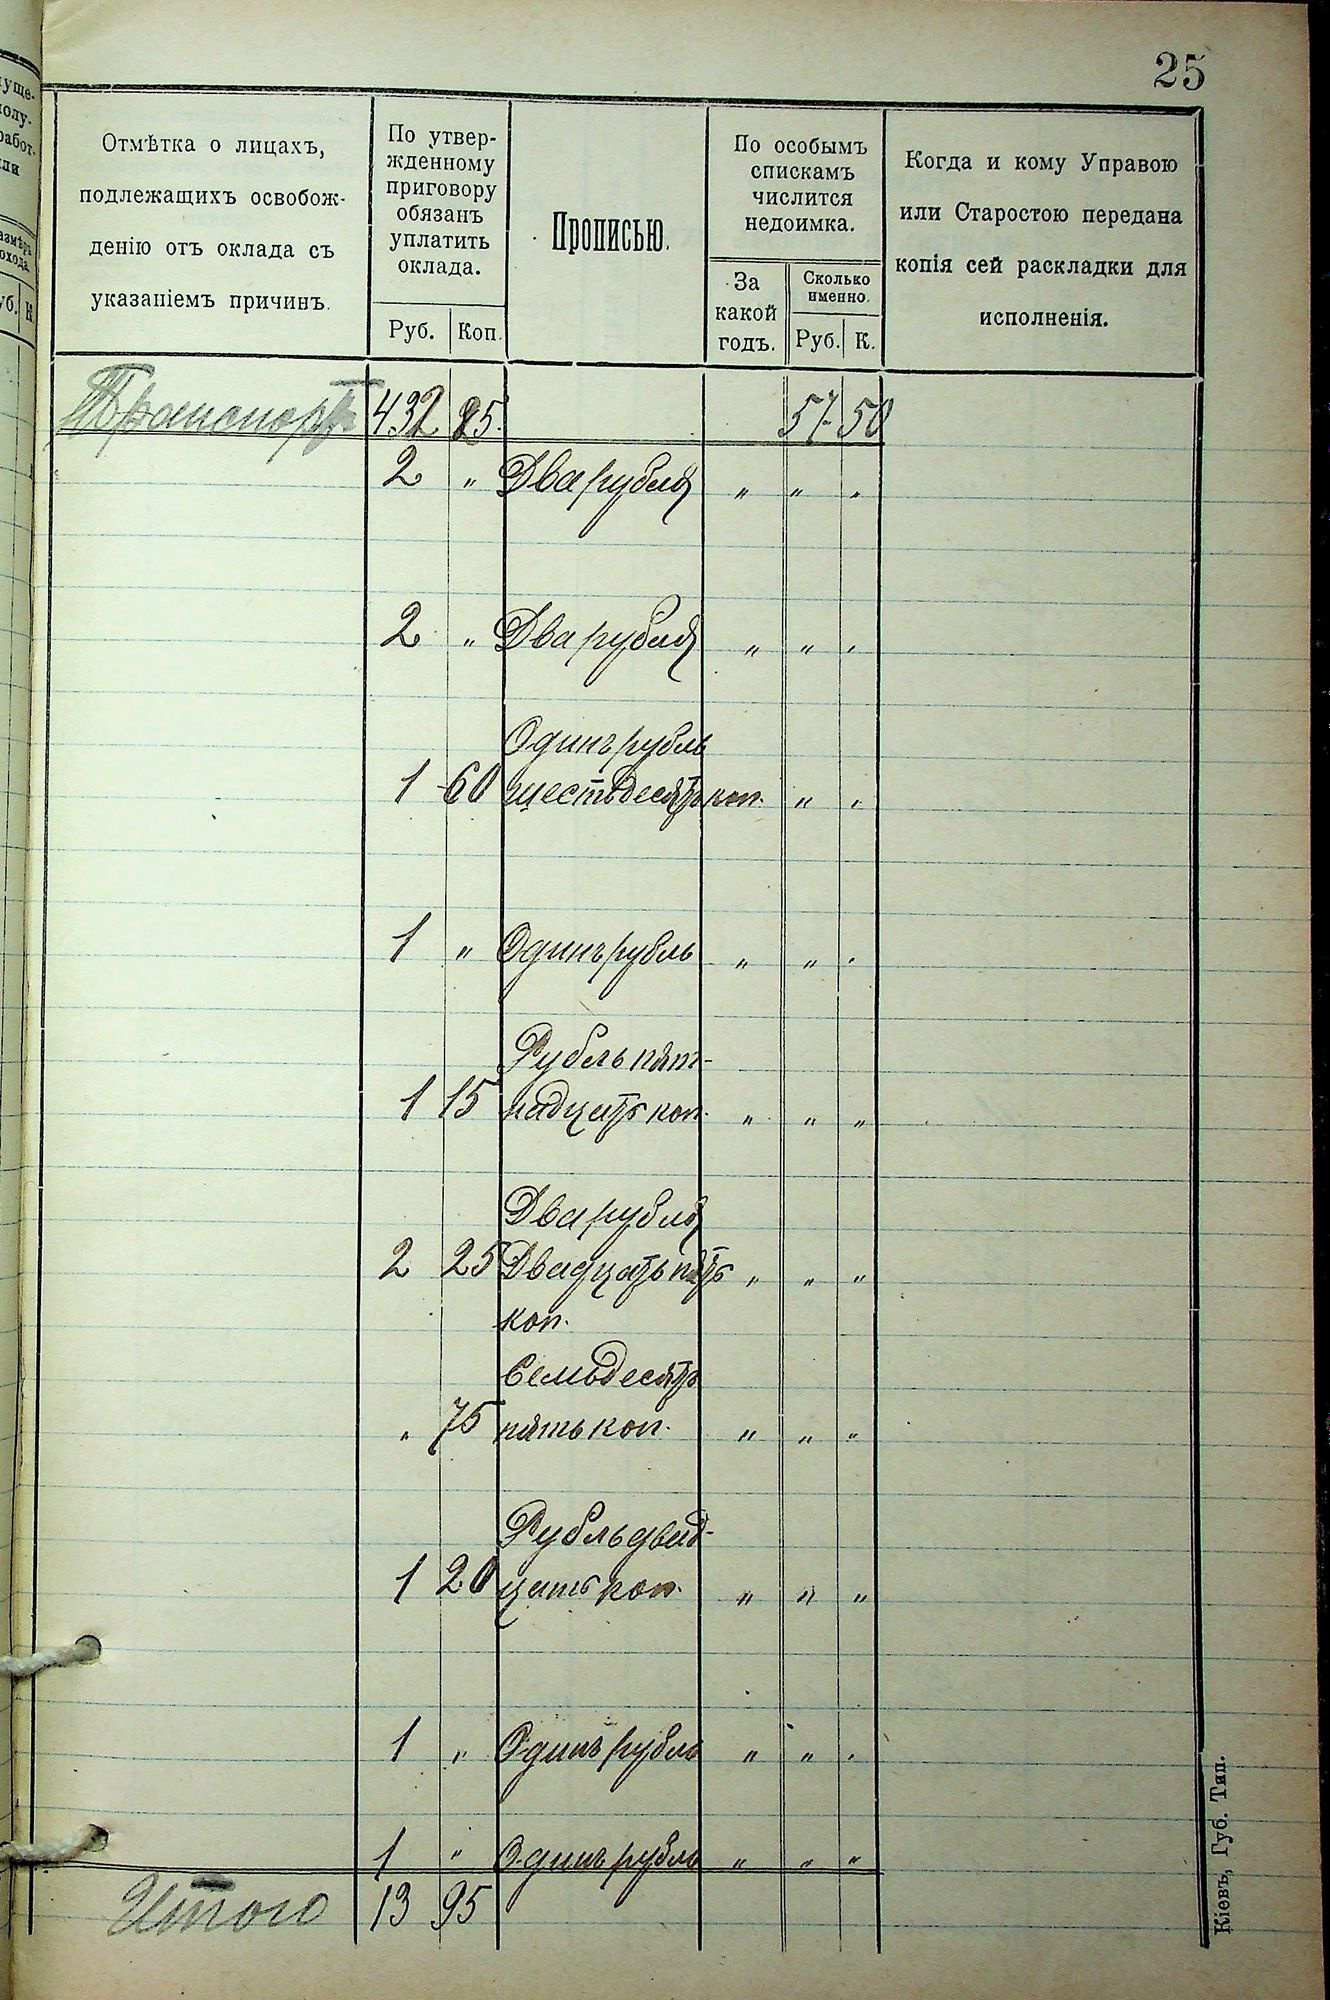 25
Отмѣтка о лицахъ,
подлежащихъ освобож-
денію отъ оклада съ
указаніемъ причинъ.
По утвер-
жденному
приговору
обязанъ
уплатить
оклада.
Руб. Коп.
Прописью.
По особымъ
спискамъ
числится
недоимка.
За
какой
годъ.
Сколько
именно.
Руб. К.
Когда и кому Управою
или Старостою передана
копія сей раскладки для
исполненія.
Транспортъ 432 25. 57 50
2 " Два рубля " " "
2 " Два рубля " " "
Одинъ рубль
1 60 шестьдесятъ коп. " "
1 " Одинъ рубль " " "
Рубль пят-
1 15 надцать коп. " " "
Два рубля
2 25 Двадцать пять " " "
коп.
Семьдесятъ
" 75 пять коп. " " "
Рубль двад-
1 20 цать коп. " " "
1 " Одинъ рубль " " "
1 " Одинъ рубль " " "
Итого 13 95
Кіевъ, Губ. Тип.